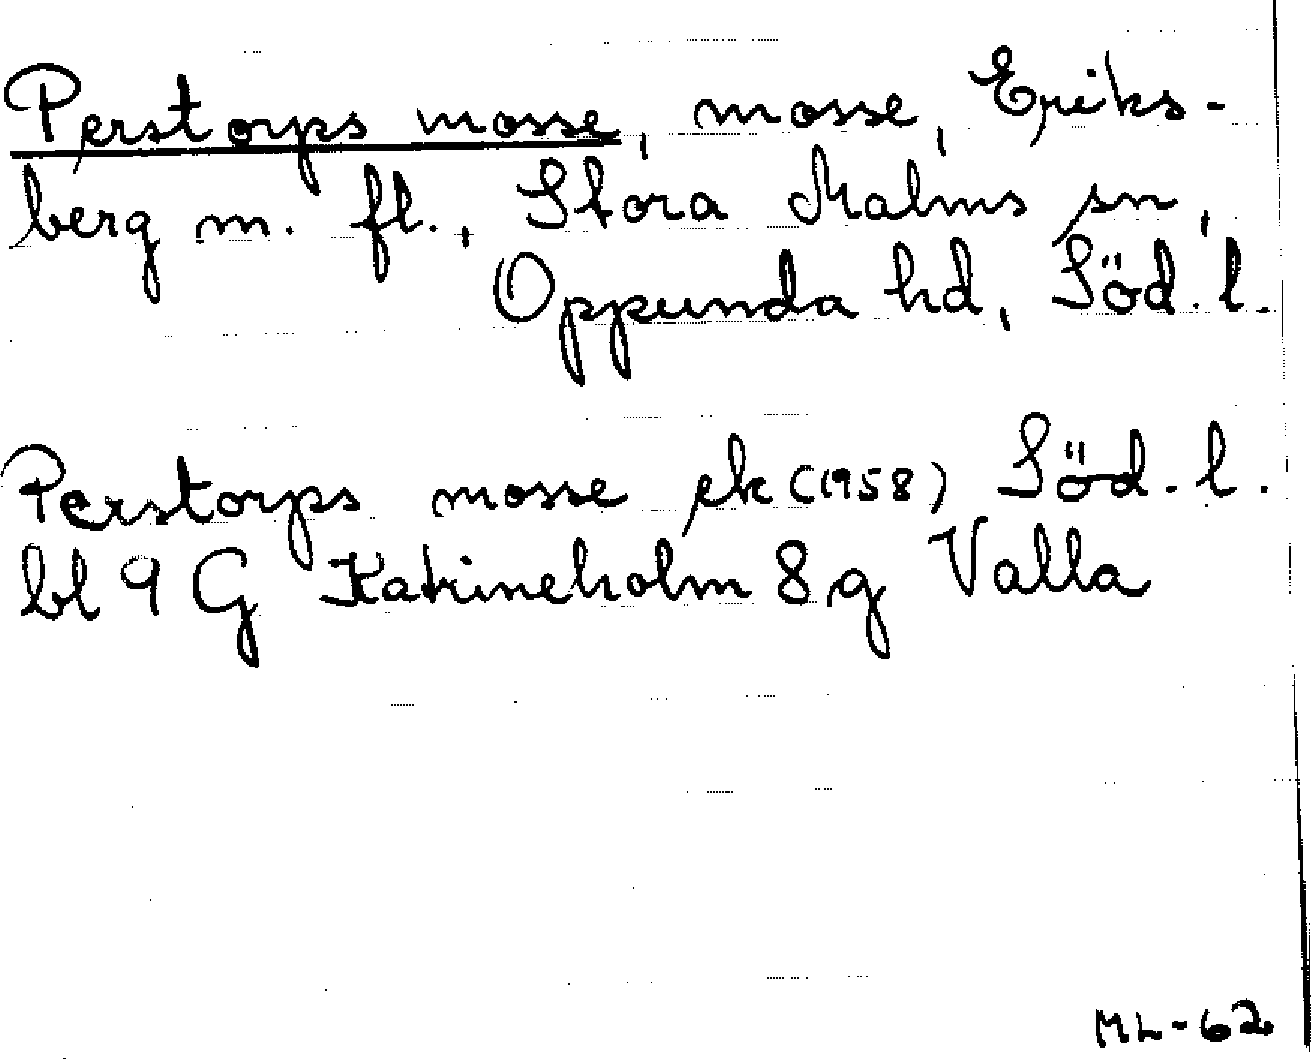 Perstorps mosse, mosse, Eriks-
berg m. fl., Stora Malms sn,
Oppunda hd, Söd. l.
Perstorps mosse ek (1958) Söd. l.
bl 9 G Katrineholm 8 g Valla
ML-62